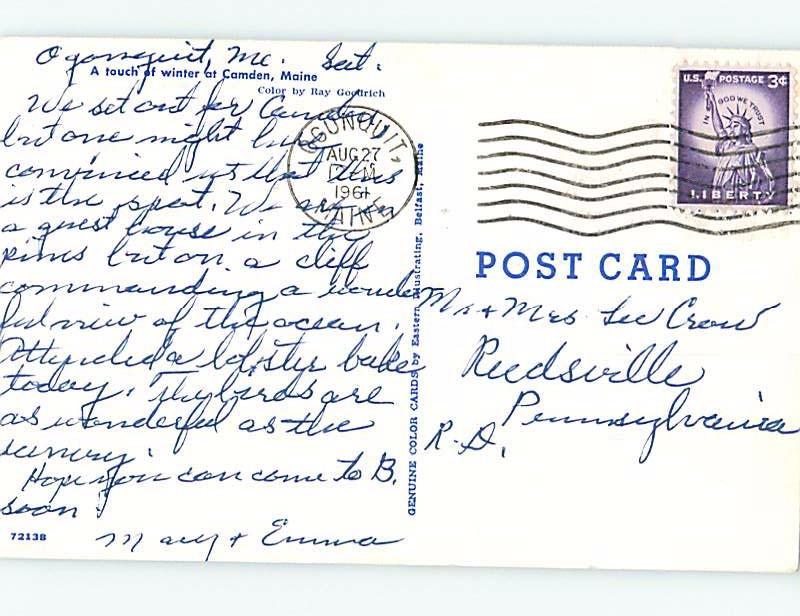 Ogonquit, Me. Sat.
A touch of winter at Camden, Maine
Color by Ray Goodrich
We set out for Camden,
but one night here
convinced us that this
is the spot. We are in
a guest house in the
pines but on a cliff
commanding a wonder
ful view of the ocean.
Attended a lobster bake
today. The birds are
as wonderful as the
scenery.
Hope you can come to B.
soon!
Mary + Emma
72138
GENUINE COLOR CARDS by Eastern Illustrating, Belfast, Maine
OGUNQUIT,
AUG 27
M
1961
MAINE
U.S. POSTAGE 3¢
IN GOD WE TRUST
LIBERTY
POST CARD
Mr + Mrs Lee Crow
Reedsville
Pennsylvania
R.D.